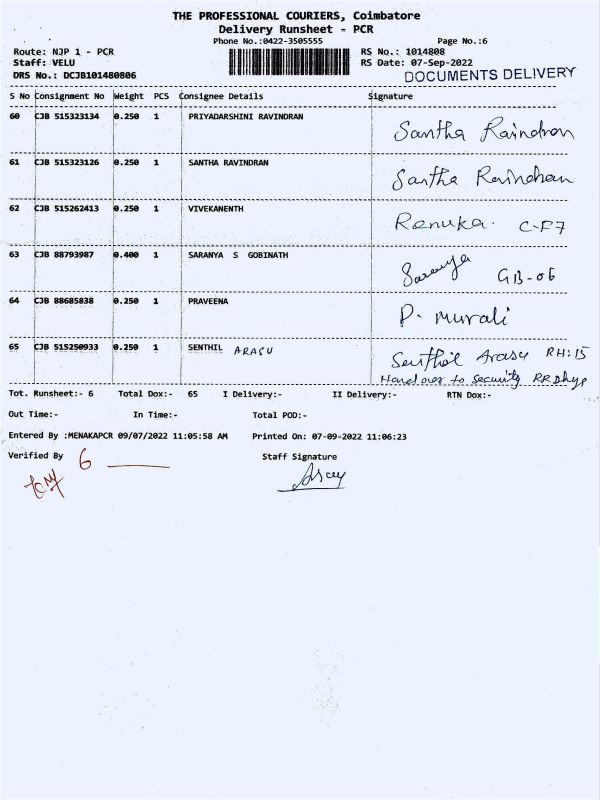 THE PROFESSIONAL COURIERS, Coimbatore
Delivery Runsheet - PCR
Phone No.:0422-3505555 Page No.:6
Route: NJP 1 - PCR RS No.: 1014808
Staff: VELU RS Date: 07-Sep-2022
DRS No.: DCJB101480806 DOCUMENTS DELIVERY
S No Consignment No Weight PCS Consignee Details Signature
60 CJB 515323134 0.250 1 PRIYADARSHINI RAVINDRAN Santha Raindran
61 CJB 515323126 0.250 1 SANTHA RAVINDRAN Santha Ravindran
62 CJB 515262413 0.250 1 VIVEKANENTH Renuka. C-F7
63 CJB 88793987 0.400 1 SARANYA S GOBINATH Saranya GB-06
64 CJB 88685838 0.250 1 PRAVEENA P. Murali
65 CJB 515250933 0.250 1 SENTHIL ARASU Senthil Arasu RH:15
Hand over to Security RR
Tot. Runsheet:- 6 Total Dox:- 65 I Delivery:- II Delivery:- RTN Dox:-
Out Time:- In Time:- Total POD:-
Entered By :MENAKAPCR 09/07/2022 11:05:58 AM Printed On: 07-09-2022 11:06:23
Verified By 6 Staff Signature